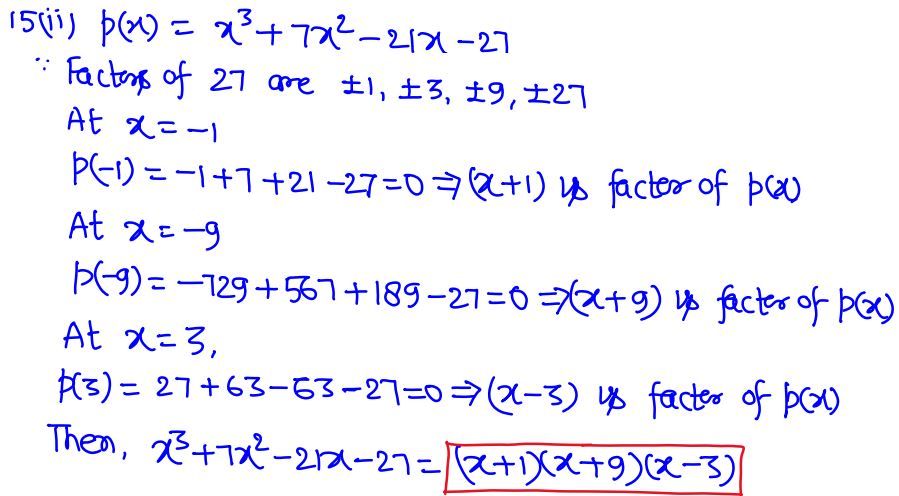 15(ii) p(x) = x³ + 7x² - 21x - 27
∵ Factors of 27 are ±1, ±3, ±9, ±27
At x = -1
p(-1) = -1 + 7 + 21 - 27 = 0 ⇒ (x+1) is factor of p(x)
At x = -9
p(-9) = -729 + 567 + 189 - 27 = 0 ⇒ (x+9) is factor of p(x)
At x = 3,
p(3) = 27 + 63 - 63 - 27 = 0 ⇒ (x-3) is factor of p(x)
Then, x³ + 7x² - 21x - 27 = (x+1)(x+9)(x-3)